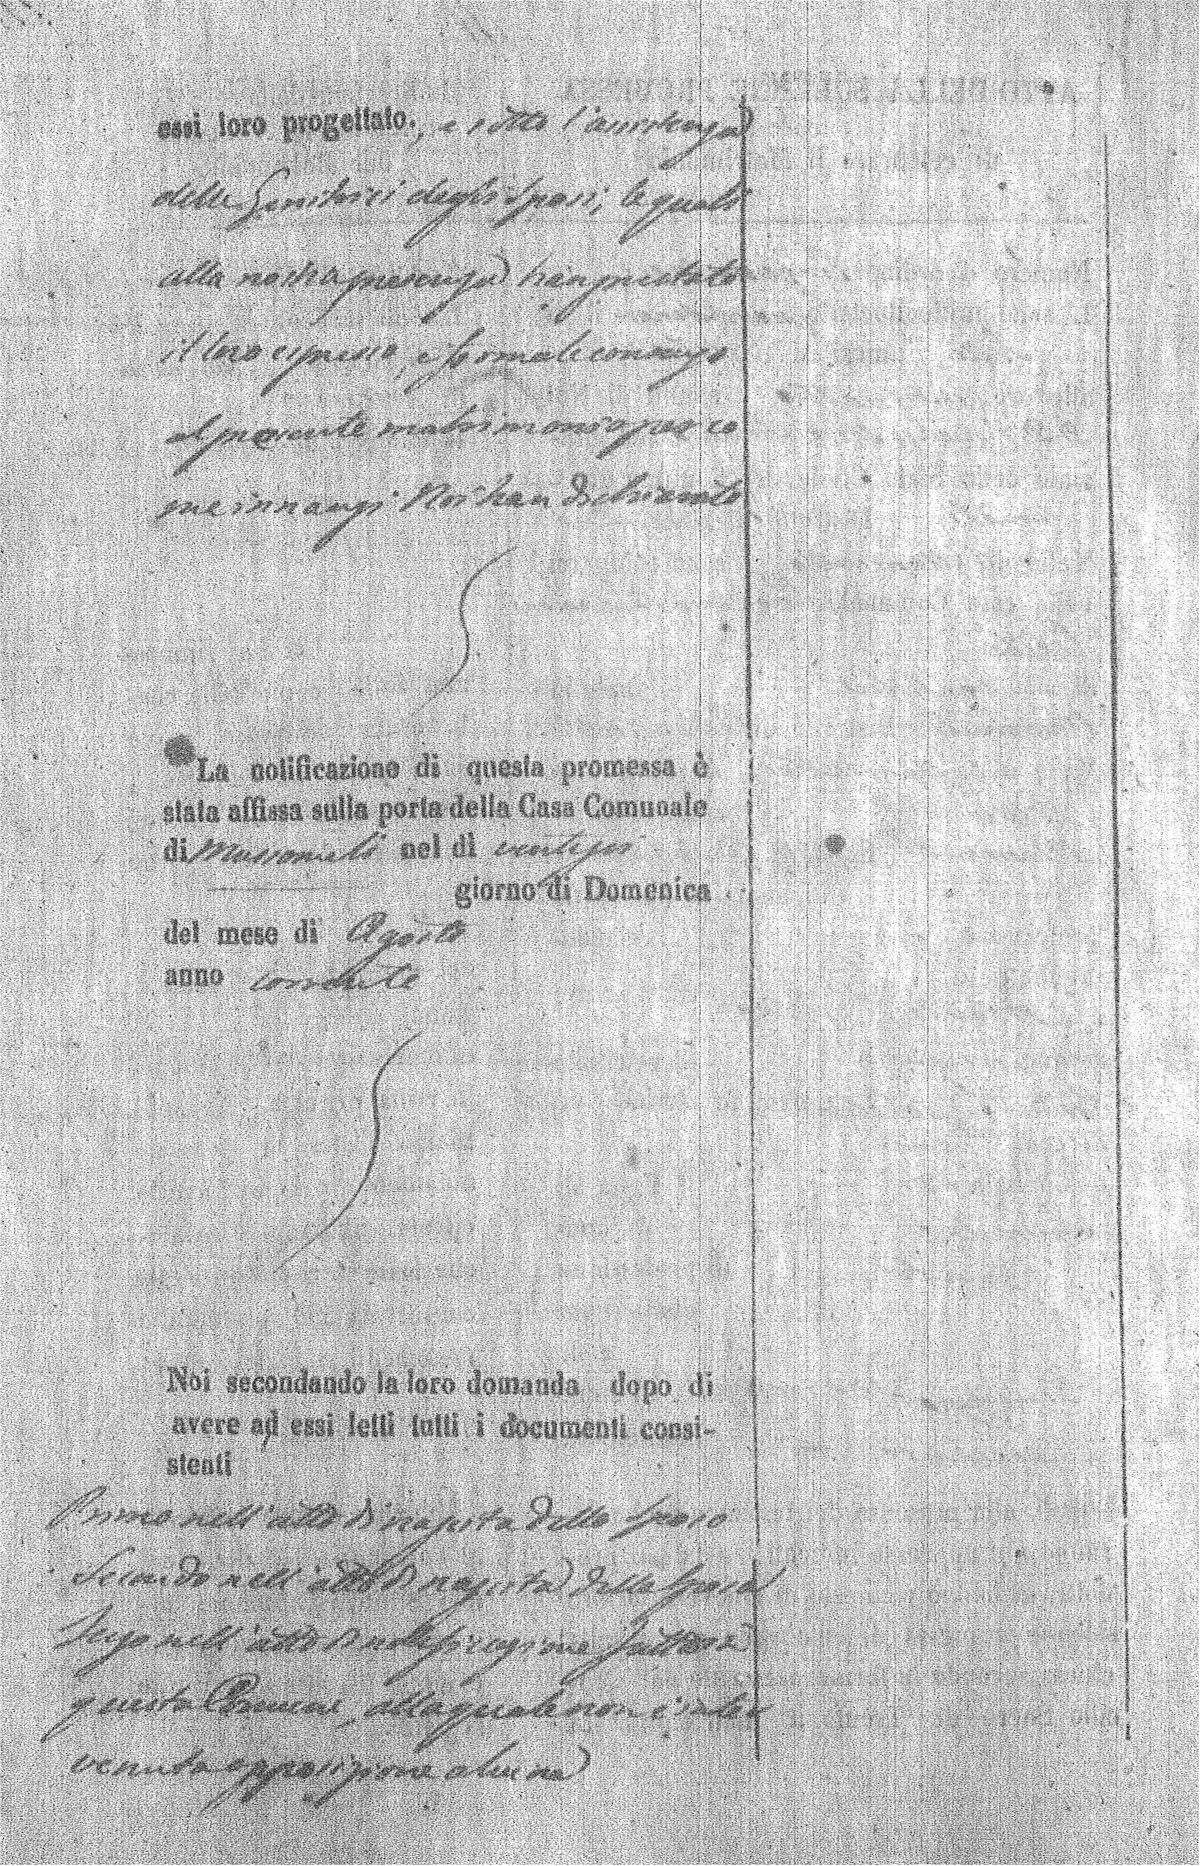 essi loro progettato., e sotto l'assistenza
delle Genitrici degli Sposi, le quali
alla nostra presenza han prestato
il loro espresso, e formale consenso
al presente matrimonio per co
me innanzi Noi han dichiarato
La notificazione di questa promessa è
stata affissa sulla porta della Casa Comunale
di Mussomeli nel dì ventisei
giorno di Domenica
del mese di Agosto
anno corrente
Noi secondando la loro domanda dopo di
avere ad essi letti tutti i documenti consi-
stenti
Primo nell'atto di nascita dello Sposo
Secondo nell'atto di nascita della Sposa
Terzo nell'atto di notificazione fatta in
questa Comune, alla quale non è inter
venuta opposizione alcuna